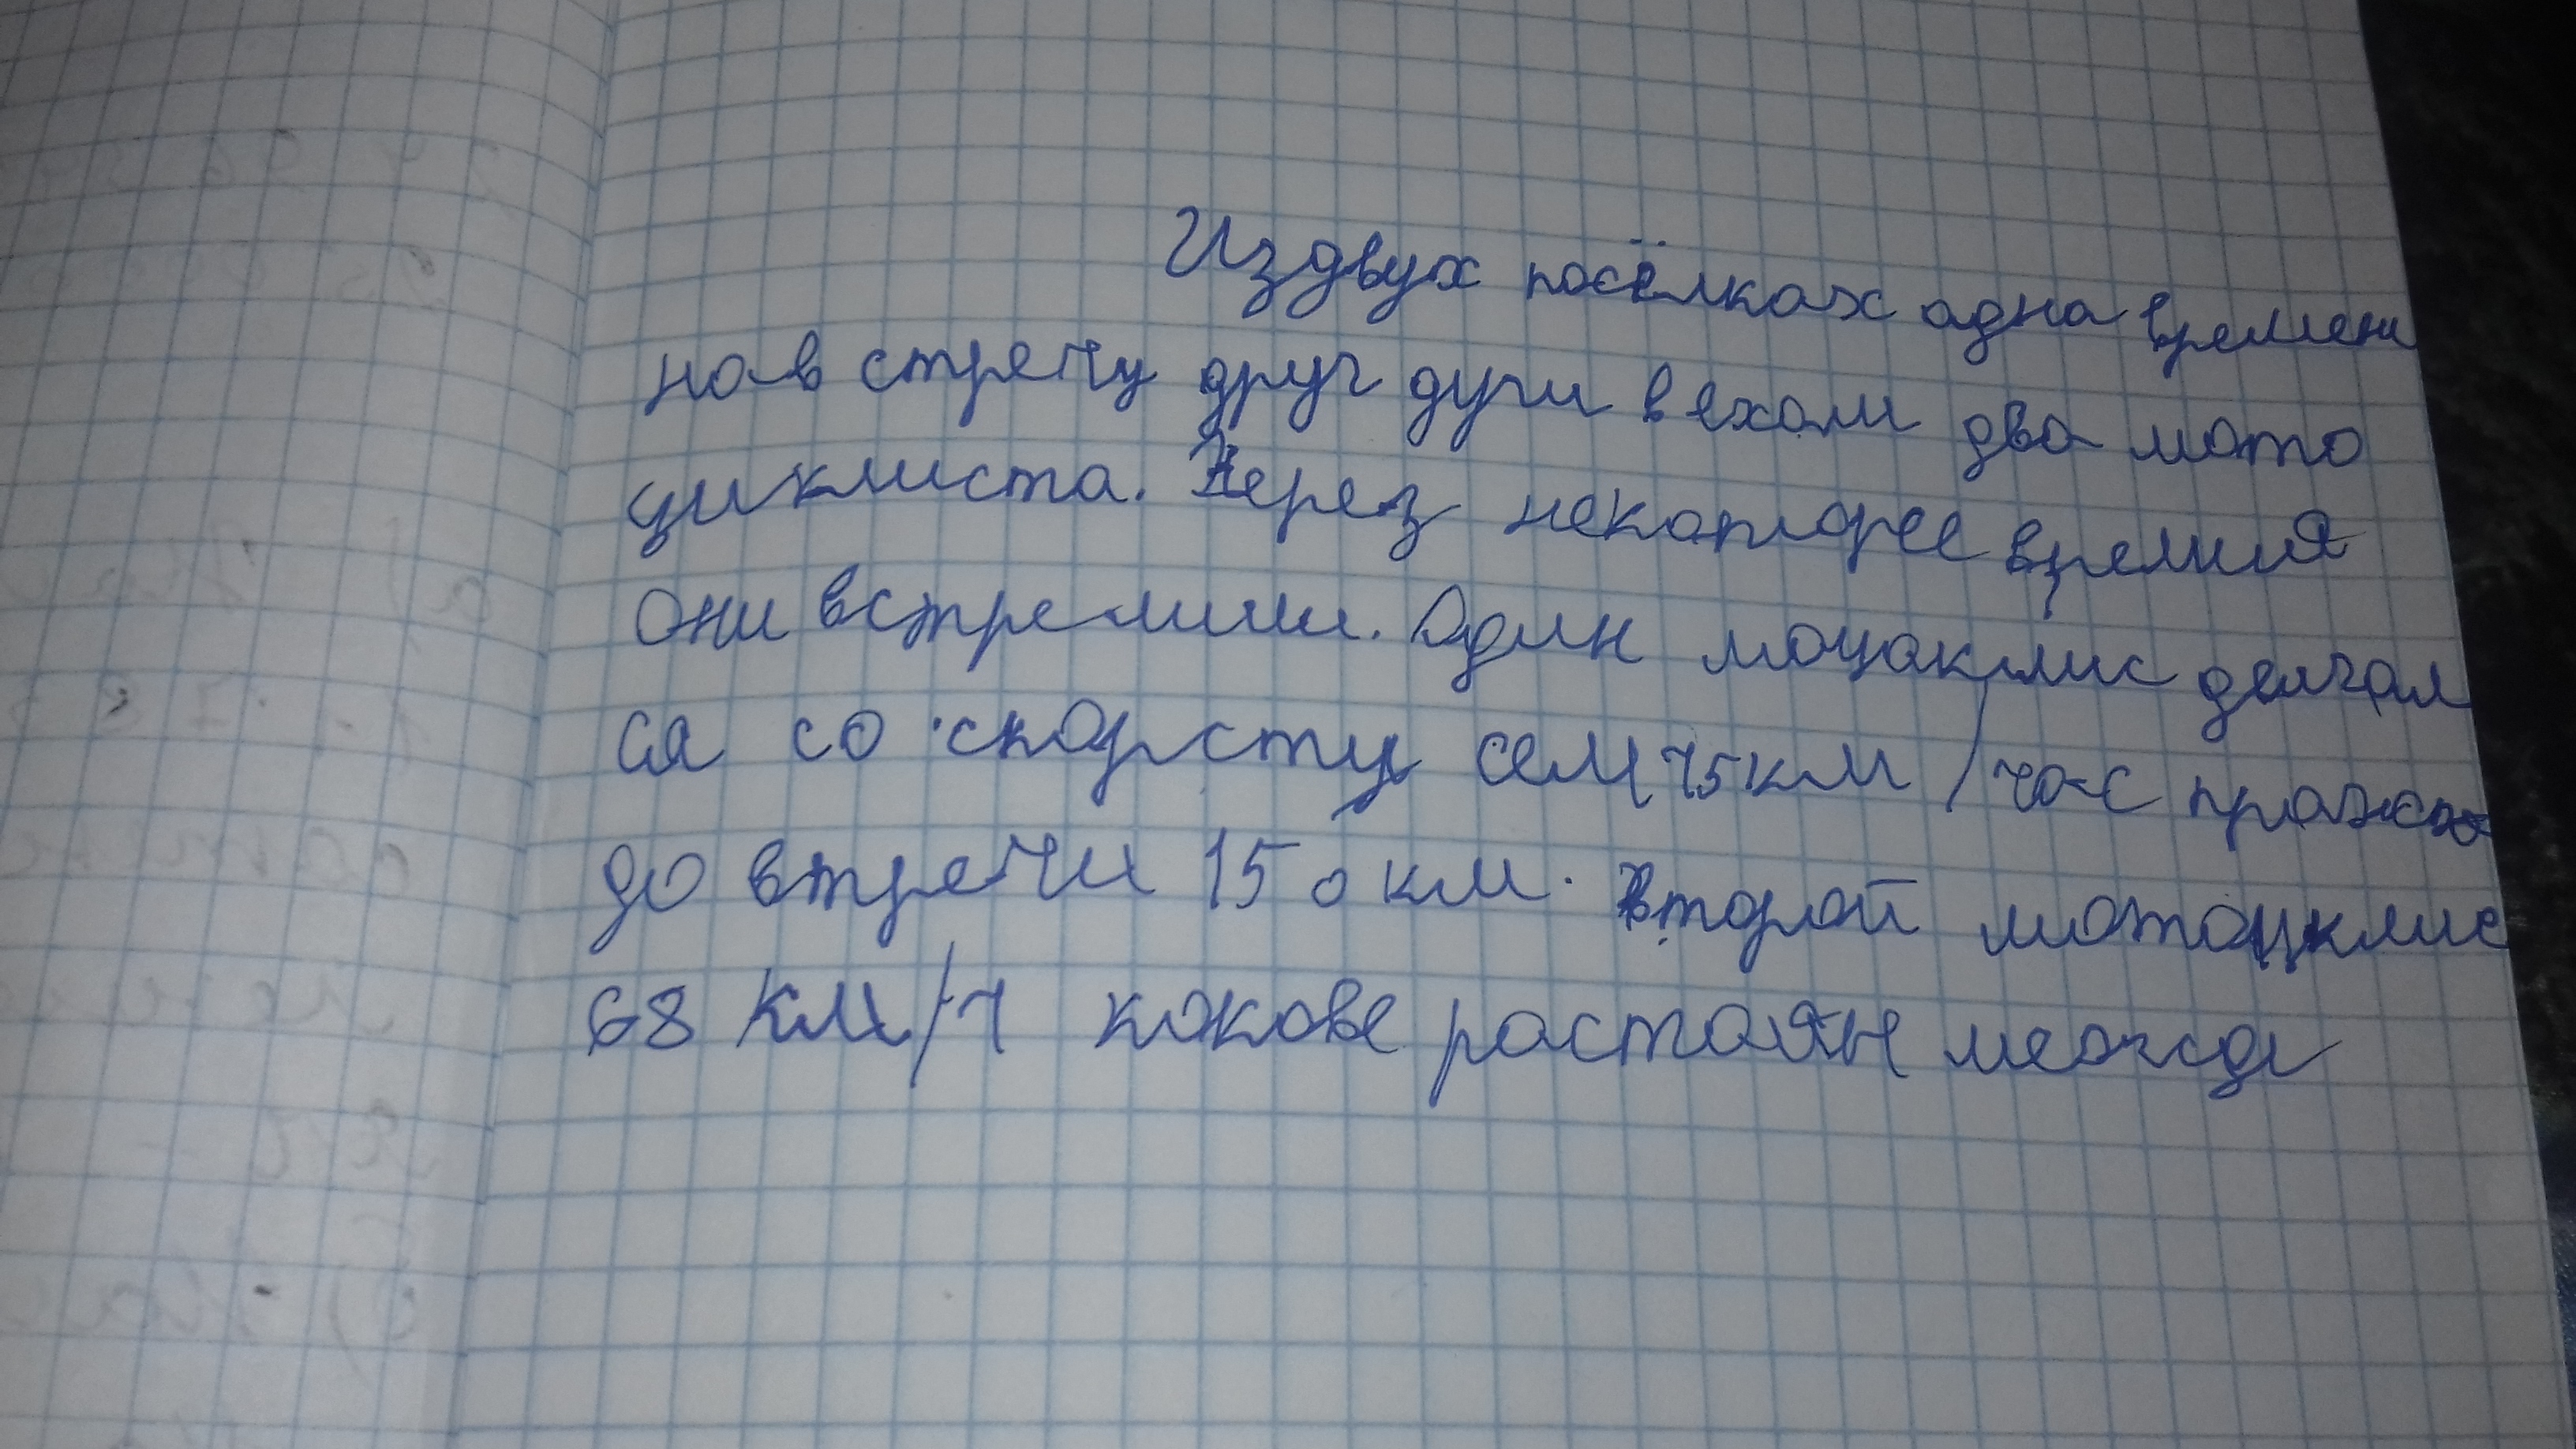 Из двух посёлках адна времени
на в стречу друг дуги вехали два мото
циклиста. Через некоторее времия
они встремили. Один моцаклис делгал
ся со скорсту сем 75 км/час праехо
до втречи 150 км. Второй мотоцклис
68 км/ч какове растоян межде